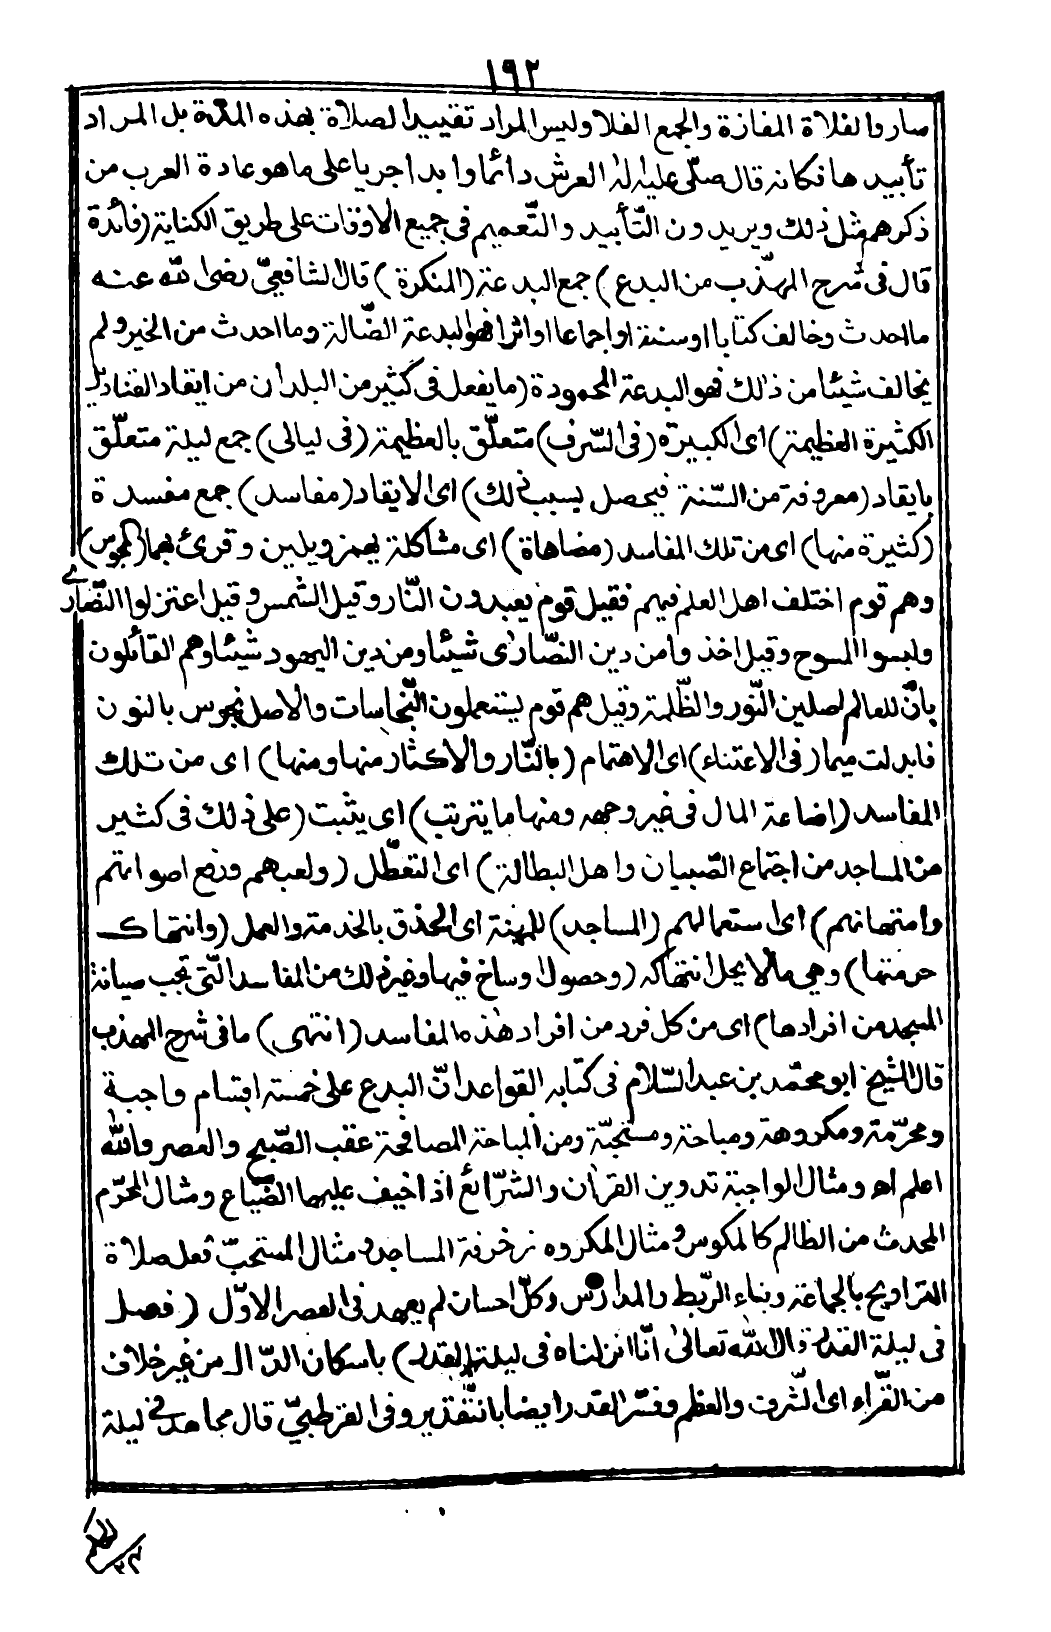 ١٩٢
صار والفلاة المفازة والجمع الفلا وليس المراد تقييدا لصلاة بهذه المدة بل المراد
تأبيدها فكانه قال صلى عليه اله العرش دائما وابدا جريا على ما هو عادة العرب من
ذكرهم مثل ذلك ويريدون التّأبيد والتّعميم فى جميع الاوقات على طريق الكناية (فائدة
قال فى شرح المهذّب من البدع) جمع البدعة (المنكرة) قال الشافعيّ رضى الله عنه
ما احدث وخالف كتابا او سنة او اجماعا او اثرا فهو البدعة الضّالة وما احدث من الخير ولم
يخالف شيئا من ذالك فهو البدعة المحمودة (ما يفعل فى كثير من البلدان من ايقاد القناديل
الكثيرة العظيمة) اى الكبيرة (فى السّرف) متعلّق بالعظيمة (فى ليالى) جمع ليلة متعلّق
بايقاد (معروفة من السّنة فيحصل بسبب ذلك) اى الايقاد (مفاسد) جمع مفسدة
(كثيرة منها) اى من تلك المفاسد (مضاهاة) اى مشاكلة بهمز ويلين وقرئ بهما (المجوس)
وهم قوم اختلف اهل العلم فيهم فقيل قوم يعبدون النّار وقيل الشمس وقيل اعتزلوا النّصارى
ولبسوا المسوح وقيل اخذوا من دين النصّارٰى شيئا ومن دين اليهود شيئا وهم القائلون
بانّ للعالم اصلين النّور والظّلمة وقيل هم قوم يستعملون النّجاسات والاصل نجوس بالنون
فابدلت ميما (فى الاعتناء) اى الاهتمام (بالنّار والاكثار منها ومنها) اى من تلك
المفاسد (اضاعة المال فى غير وجهه ومنها ما يترتب) اى يثبت (على ذلك فى كثير
من المساجد من اجتماع الصّبيان واهل البطالة) اى التعطّل (ولعبهم ورفع اصواتهم
وامتهانهم) اى استعمالهم (المساجد) للمهنة اى الحذق بالخدمة والعمل (وانتهاك
حرمتها) وهي ما لا يحل انتهاكه (وحصول اوساخ فيها وغير ذلك من المفاسد الّتى تجب صيانة
المسجد من افرادها) اى من كل فرد من افراد هٰذه المفاسد (انتهى) ما فى شرح المهذب
قال الشيخ ابو محمّد بن عبد السّلام فى كتابه القواعد انّ البدع على خمسة اقسام واجبة
ومحرّمة ومكروهة ومباحة ومستحبّة ومن المباحة المصافحة عقب الصّبح والعصر والله
اعلم اه ومثال الواجبة تدوين القرٰان والشرّائع اذا خيف عليها الضّياع ومثال المحرّم
المحدث من الظالم كالمكوس ومثال المكروه زخرفة المساجد ومثال المستحبّ فعل صلاة
التراويح بالجماعة وبناء الربّط والمدارس وكلّ احسان لم يعهد فى العصر الاوّل (فصل
فى ليلة القدر قال الله تعالىٰ انّا انزلناه فى ليلة القدر) باسكان الدّال من غير خلاف
من القرّاء اى الشّرف والعظم وفسّر القدر ايضا بالتّقدير وفى القرطبيّ قال مجاهد فى ليلة